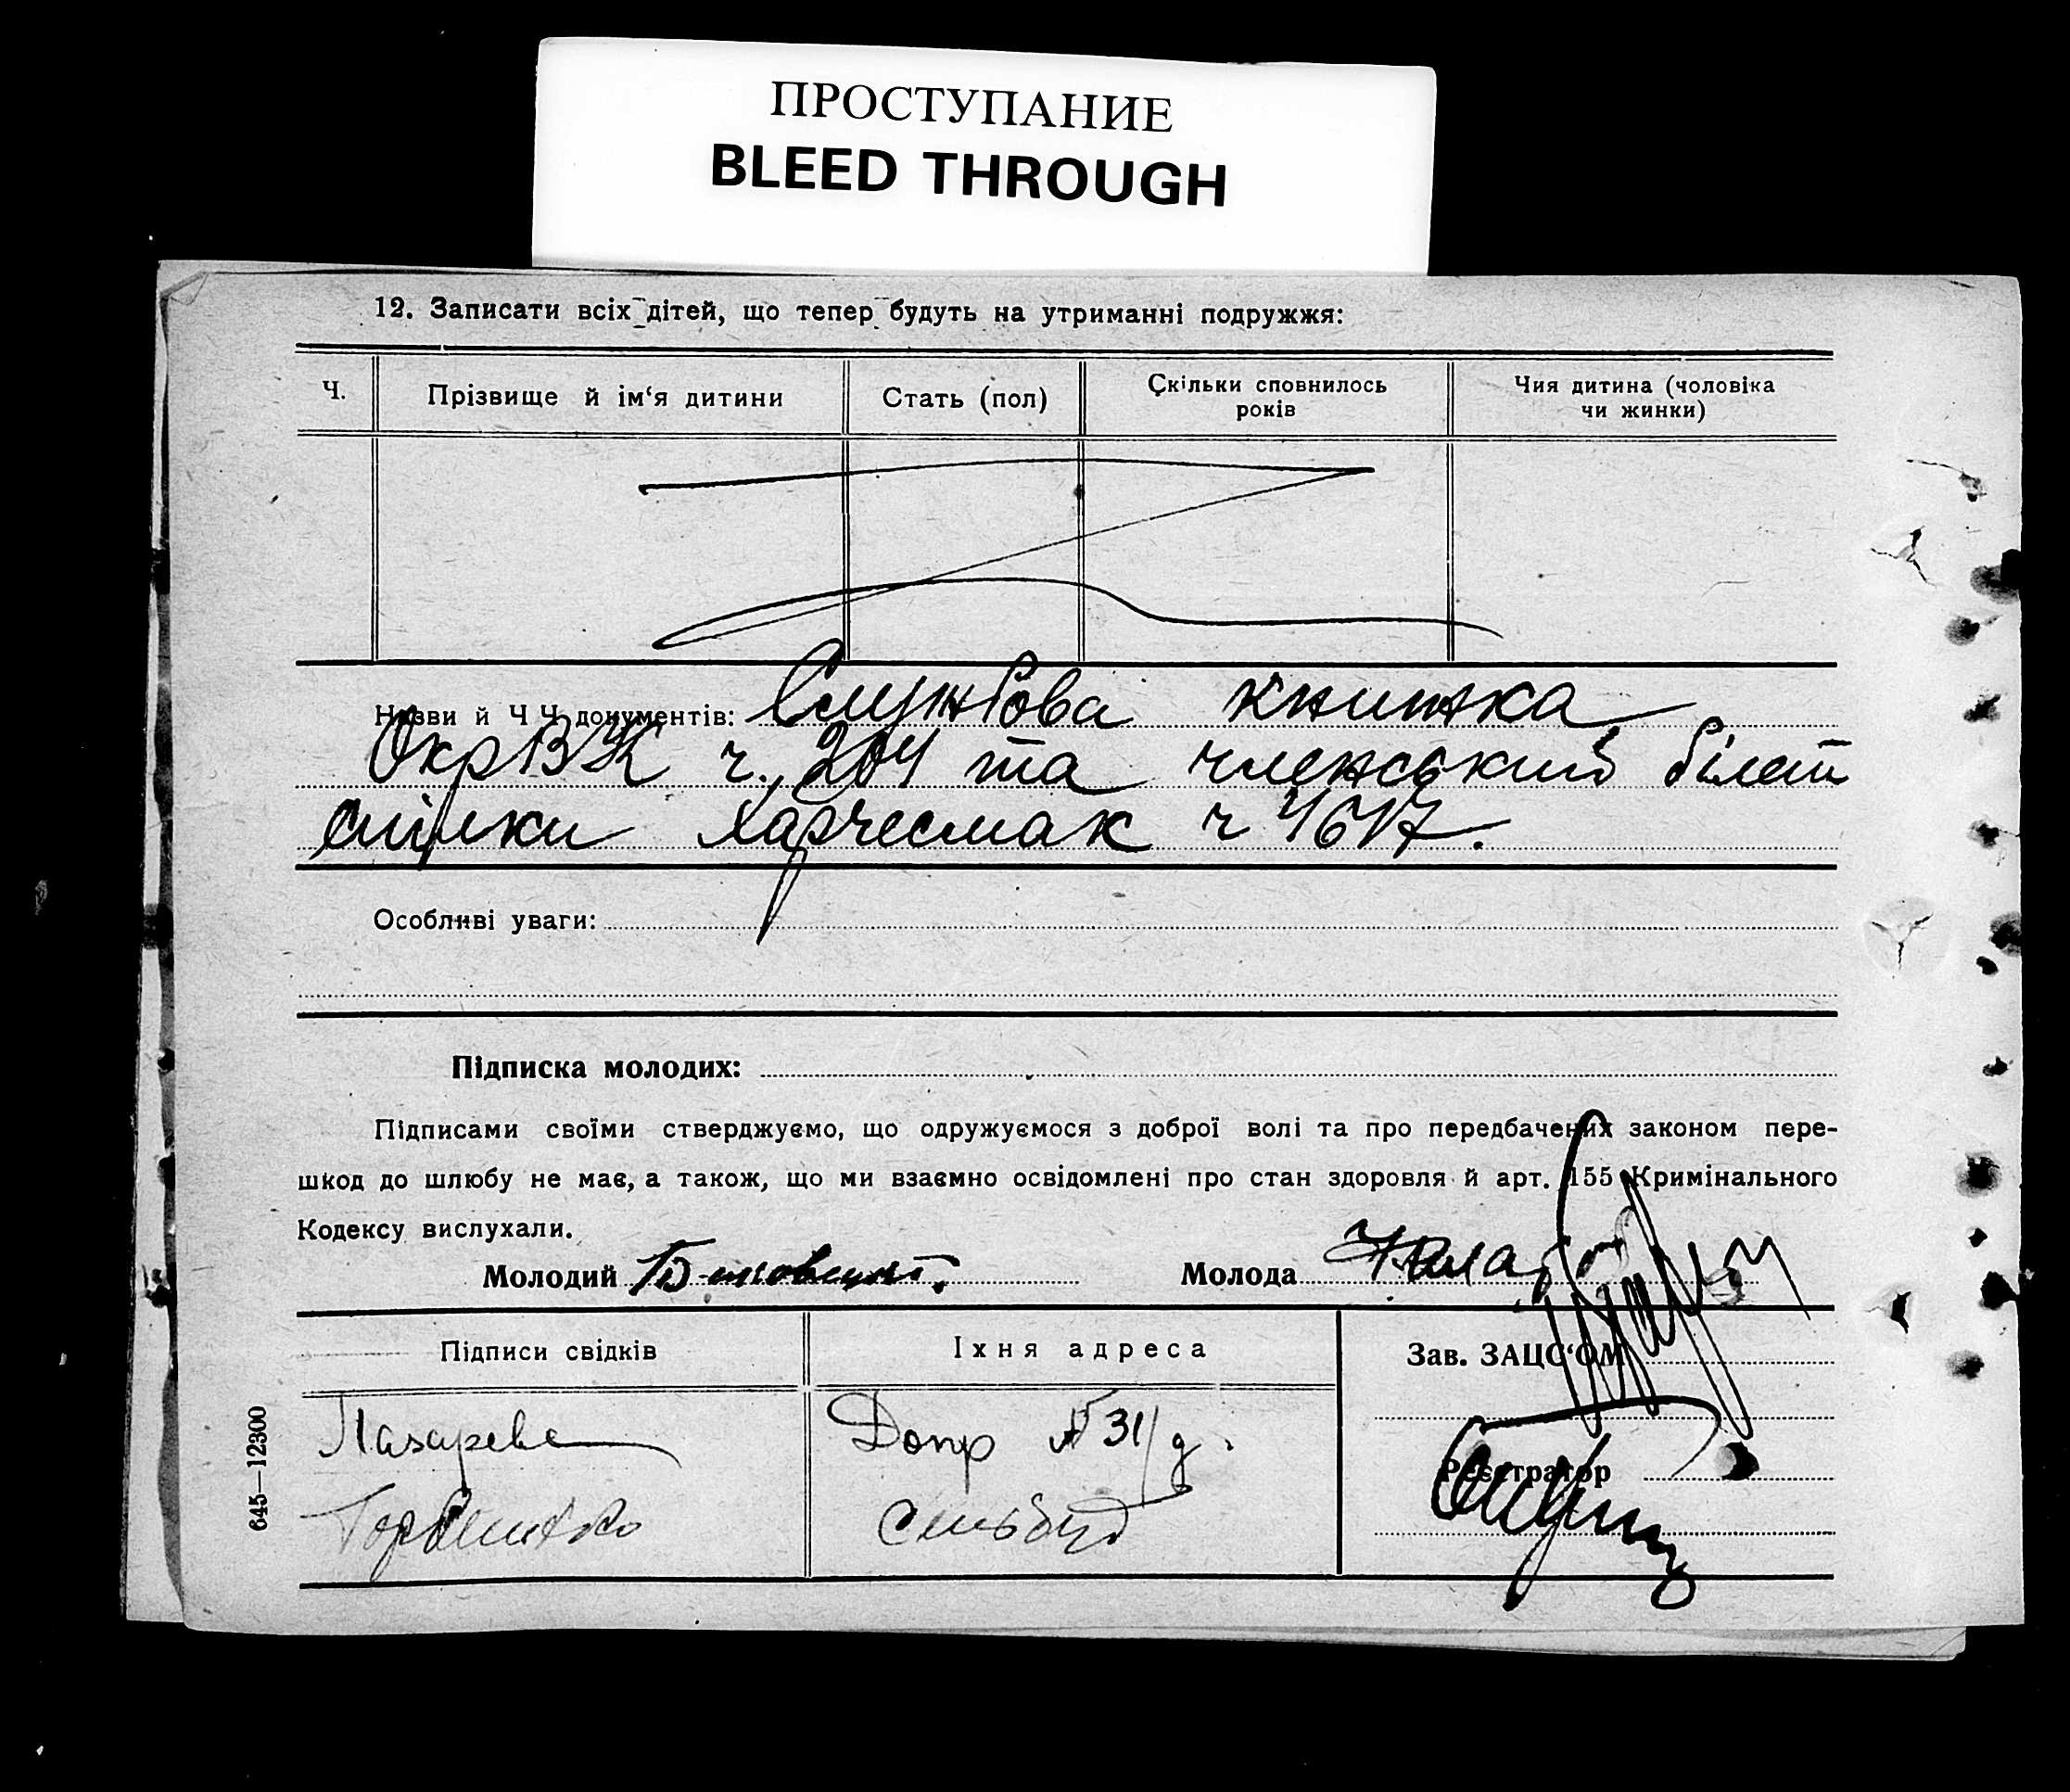 ПРОСТУПАНИЕ
BLEED THROUGH
12. Записати всіх дітей, що тепер будуть на утриманні подружжя:
Ч.
Прізвище й ім‘я дитини
Стать (пол)
Скільки сповнилось
років
Чия дитина (чоловіка
чи жинки)
Назви й Ч Ч документів: Службова книжка
ОкрВК ч. 204 та членський білет
спілки Харчесмак ч 4617.
Особливі уваги:
Підписка молодих:
Підписами своїми стверджуємо, що одружуємося з доброї волі та про передбачених законом пере-
шкод до шлюбу не має, а також, що ми взаємно освідомлені про стан здоровля й арт. 155 Кримінального
Кодексу вислухали.
Молодий
Молода
Підписи свідків
Їхня адреса
Зав. ЗАЦС‘ОМ
Лазарева
Допр № 31/д.
Реєстратор
Горбенко
Сельбуд
645—12300